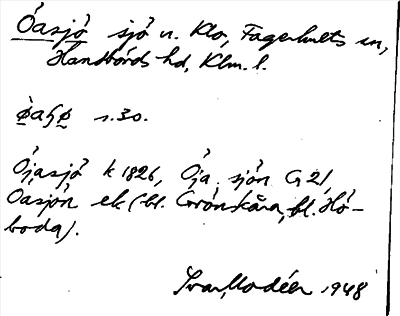 Öasjö sjö n. Klo, Fagerhults sn,
Handbörds hd, Klm. l.
s. 30.
Öjasjö k 1826, Öja sjön G 21,
Öasjön ek (bl. Grönskåra, bl. Hö-
boda).
Ivar Modéer 1948